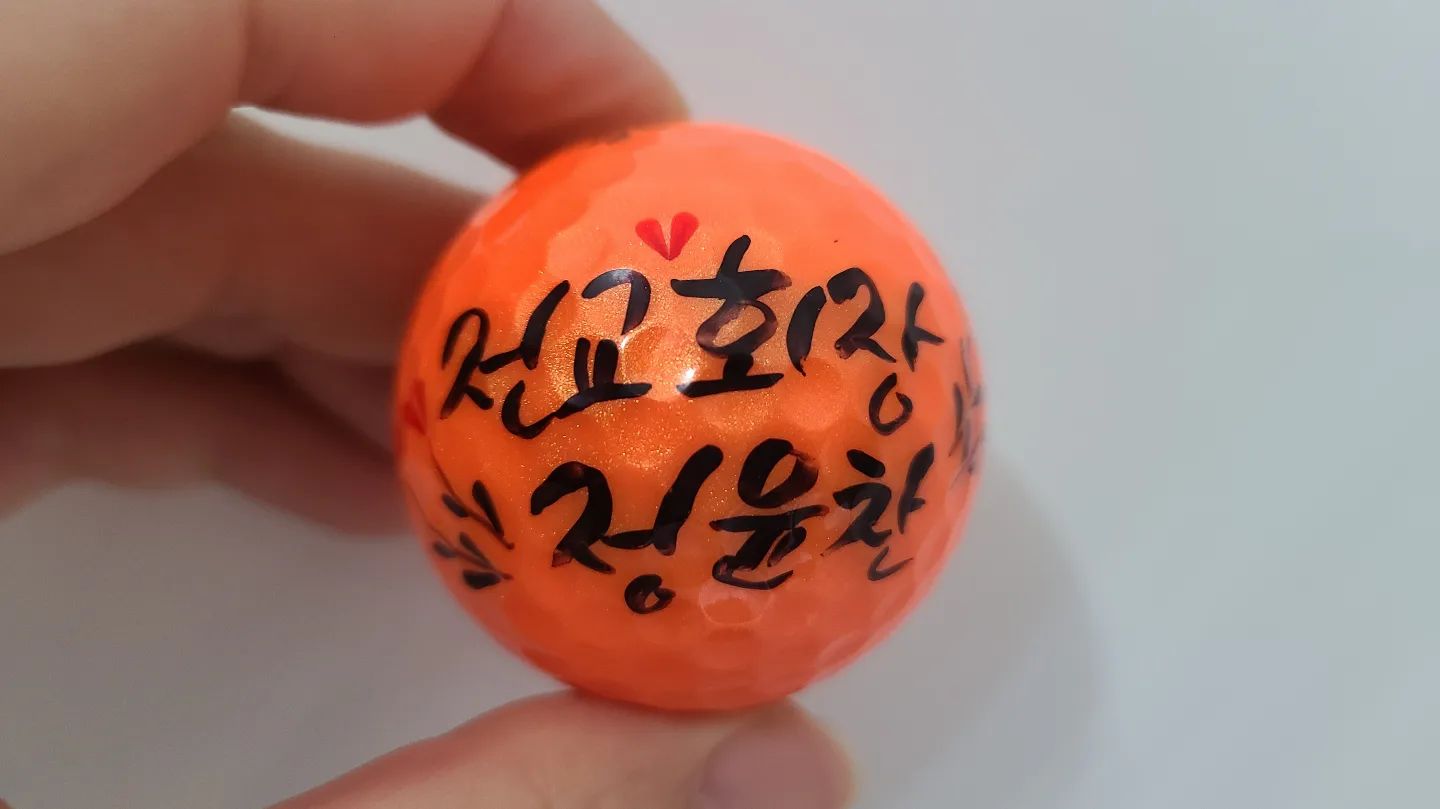 전교회장
정윤찬